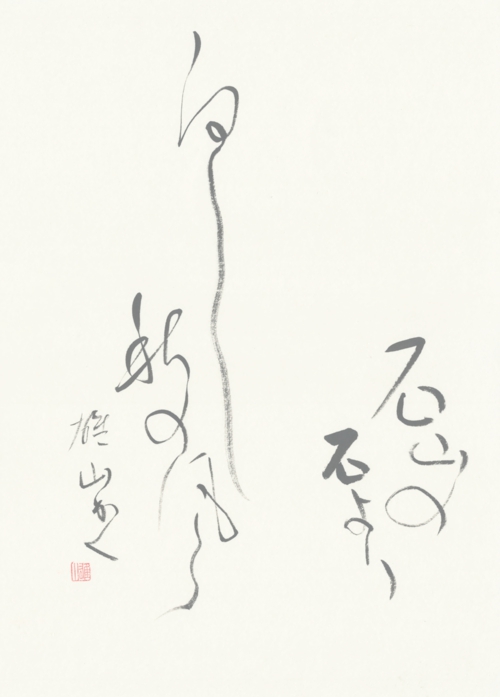 石山の
石より
白し
秋の風
雄山かく